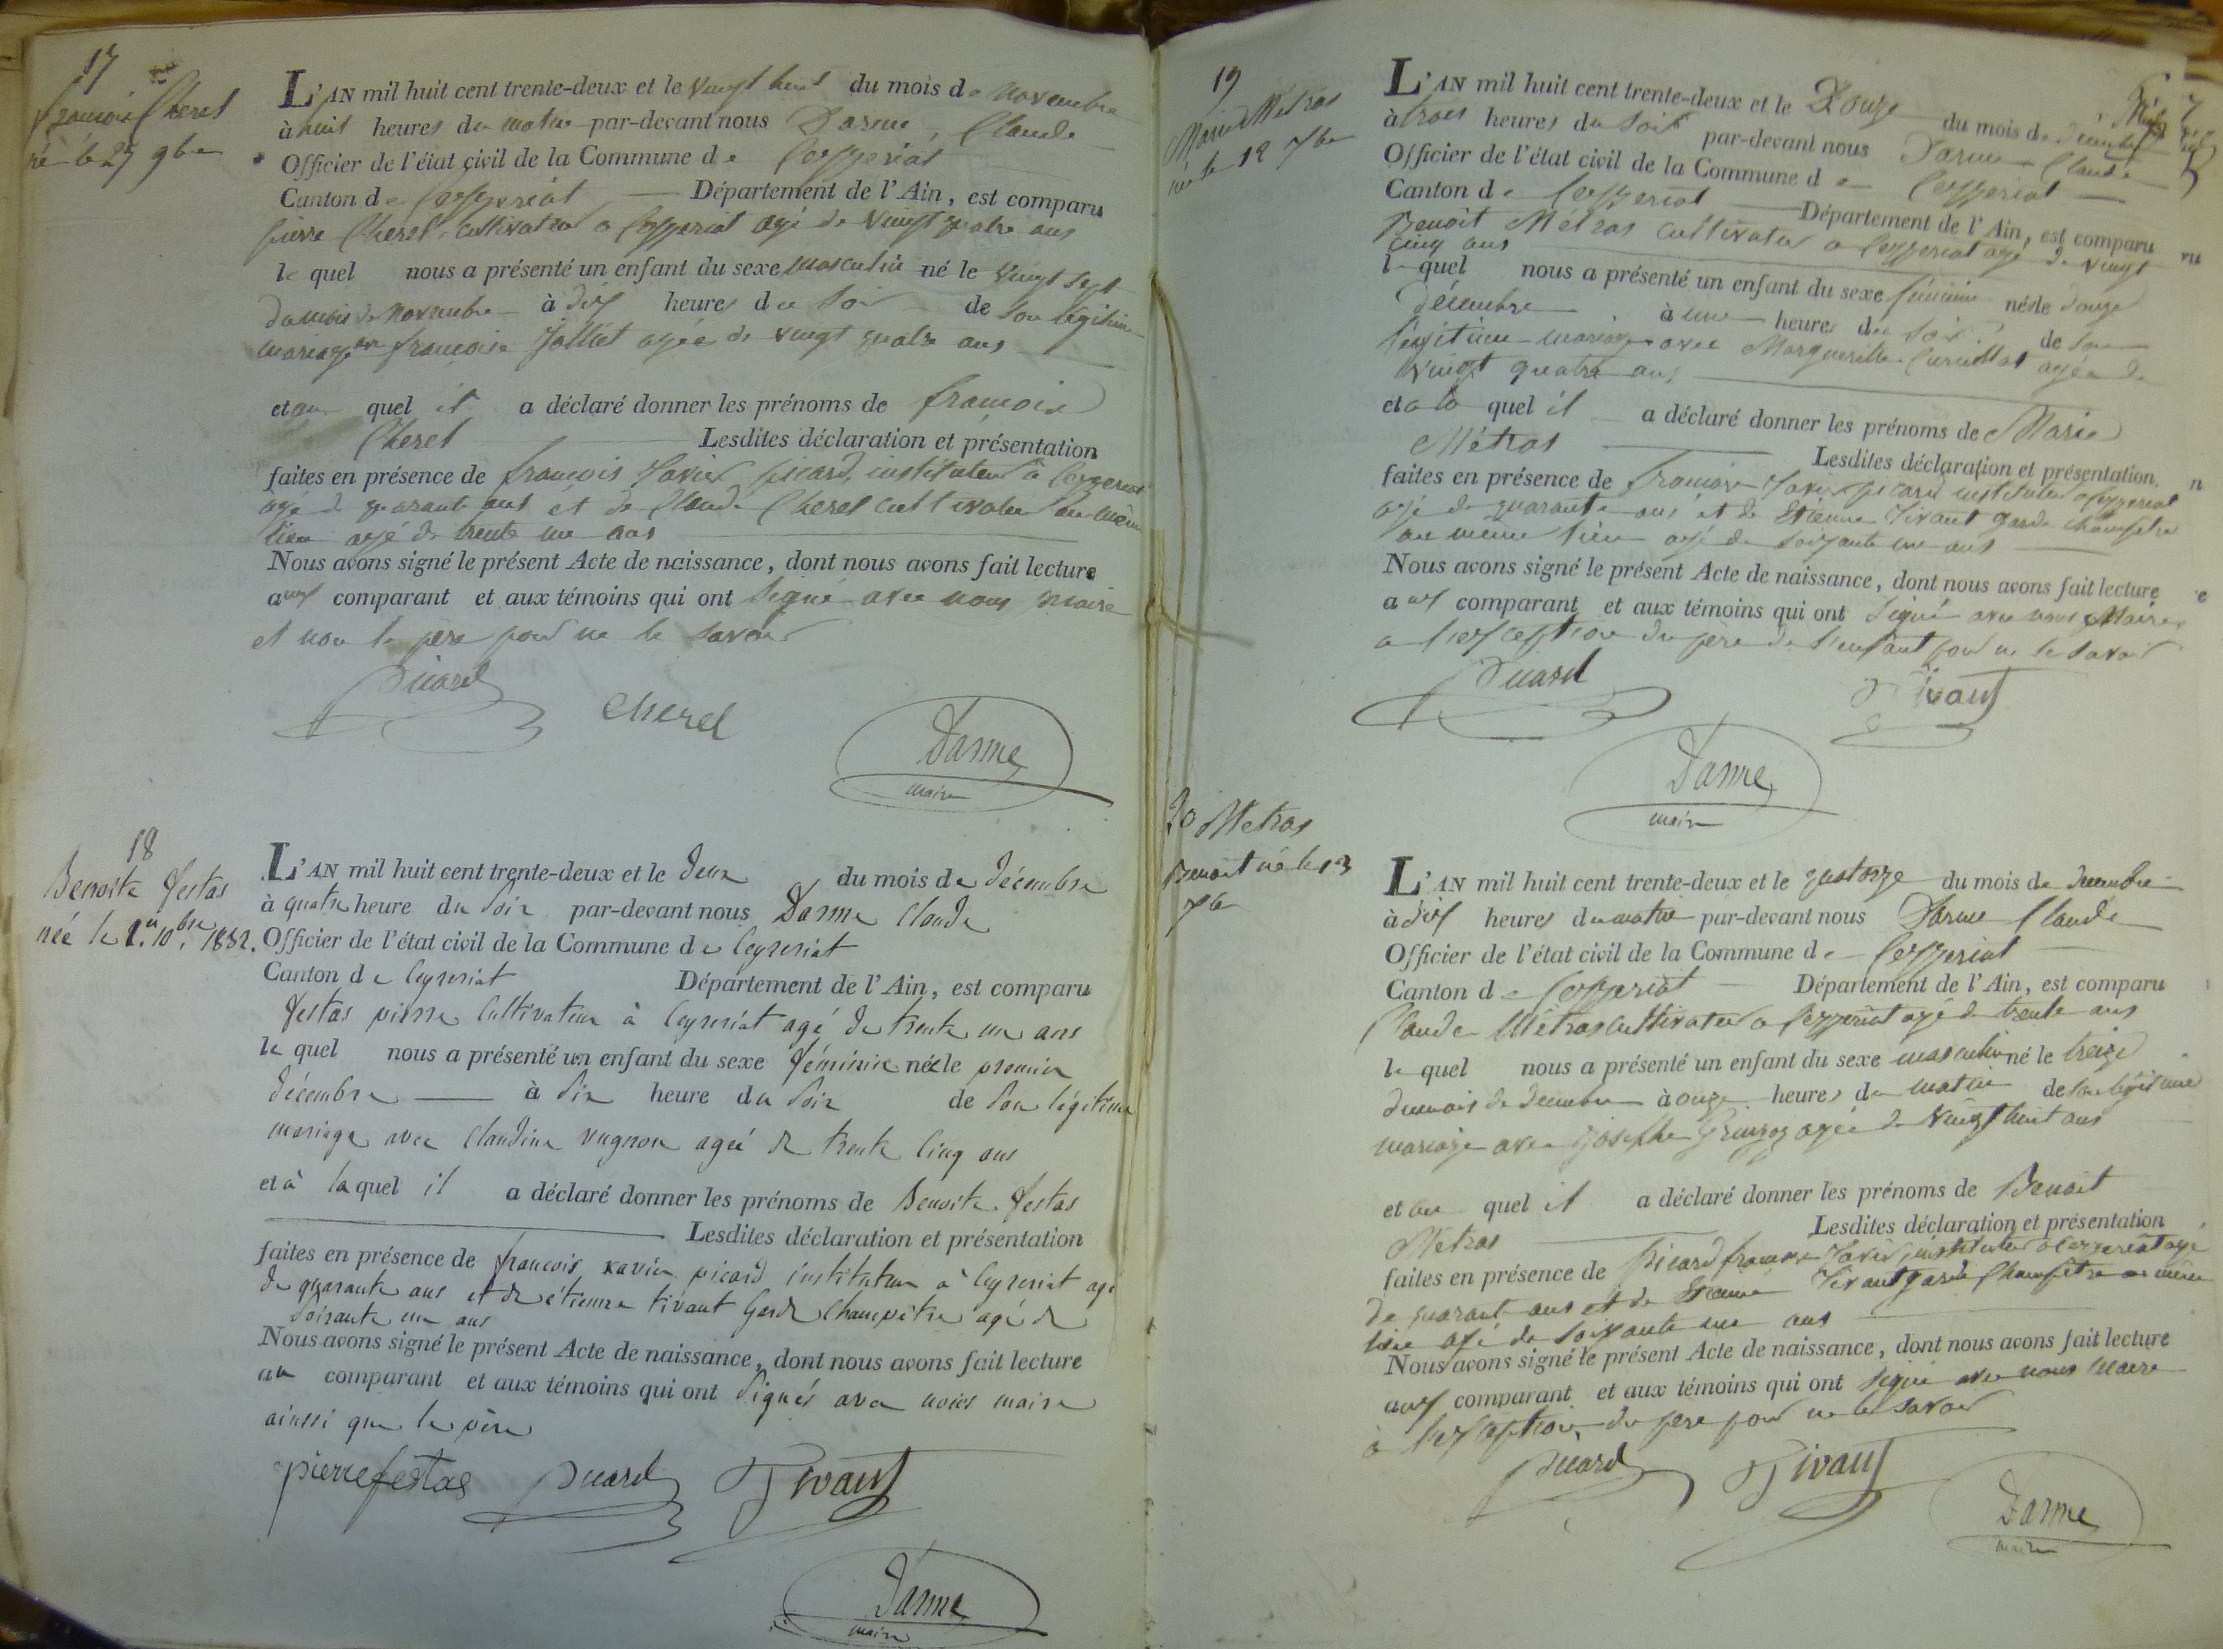 17
françois Cherel
né le 27 9bre
L'AN mil huit cent trente-deux et le vingt huit du mois de novembre
à huit heures du matin par-devant nous Darme, Claude
Officier de l'état civil de la Commune de Ceyzeriat
Canton de Ceyzeriat Département de l'Ain, est comparu
pierre Cherel, cultivateur a Ceyzeriat agé de vingt quatre ans
le quel nous a présenté un enfant du sexe masculin né le vingt sept
du mois de novembre à dix heures du soir de son légitime
mariage françoise Jolliet agée de vingt quatre ans
et au quel il a déclaré donner les prénoms de françois
Cherel Lesdites déclaration et présentation
faites en présence de françois Xavier picard, instituteur à Ceyzeriat
agé de quarante ans et de Claude Cherel cultivateur au même
lieu agé de trente un ans
Nous avons signé le présent Acte de naissance, dont nous avons fait lecture
aux comparant et aux témoins qui ont signé avec nous maire
et non le père pour ne le savoir
Picard
Cherel
Darme
maire
18
Benoite festas
née le 1er 10bre 1832.
L'AN mil huit cent trente-deux et le deux du mois de décembre
à quatre heure du soir par-devant nous Darme Claude
Officier de l'état civil de la Commune de Ceyzeriat
Canton de Ceyzeriat Département de l'Ain, est comparu
festas pierre cultivateur à Ceyzeriat agé de trente un ans
le quel nous a présenté un enfant du sexe féminin née le premier
décembre à six heure du soir de son légitime
mariage avec Claudine vugnon agée de trente cinq ans
et à la quel il a déclaré donner les prénoms de Benoite festas
Lesdites déclaration et présentation
faites en présence de françois xavier picard instituteur à Ceyzeriat agé
de quarante ans et de étienne tivant garde champêtre agé de
soixante un ans
Nous avons signé le présent Acte de naissance, dont nous avons fait lecture
au comparant et aux témoins qui ont signés avec nous maire
ainssi que le père
pierre festas Picard Tivant
Darme
maire
19
Marie Métras
née le 12
L'AN mil huit cent trente-deux et le Douze du mois de décembre
à trois heures du soir par-devant nous Darme Claude
Officier de l'état civil de la Commune de Ceyzeriat
Canton de Ceyzeriat Département de l'Ain, est comparu
Benoit Métras cultivateur a Ceyzeriat agé de vingt
cinq ans
le quel nous a présenté un enfant du sexe féminin née le douze
décembre à une heures du soir de son
légitime mariage avec Marguerite agée de
vingt quatre ans
et a la quel il a déclaré donner les prénoms de Marie
Métras Lesdites déclaration et présentation
faites en présence de françois Xavier picard instituteur a Ceyzeriat
agé de quarante ans et de Etienne Tivant garde champêtre
au même lieu agé de soixante un ans
Nous avons signé le présent Acte de naissance, dont nous avons fait lecture
aux comparant et aux témoins qui ont signé avec nous Maire
a l'exception du père de l'enfant pour ne le savoir
Picard Tivant
Darme
maire
20 Métras
Benoit né le 13
L'AN mil huit cent trente-deux et le quatorze du mois de decembre
à dix heures du matin par-devant nous Darme Claude
Officier de l'état civil de la Commune de Ceyzeriat
Canton de Ceyzeriat Département de l'Ain, est comparu
Claude Métras cultivateur a Ceyzeriat agé de trente ans
le quel nous a présenté un enfant du sexe masculin né le treize
du mois de decembre à onze heures du matin de son légitime
mariage avec Josephe agée de vingt huit ans
et au quel il a déclaré donner les prénoms de Benoit
Métras Lesdites déclaration et présentation
faites en présence de picard françois Xavier, instituteur a Ceyzeriat agé
de quarant ans et de Etienne Tivant garde champêtre au même
lieu agé de soixante un ans
Nous avons signé le présent Acte de naissance, dont nous avons fait lecture
aux comparant et aux témoins qui ont signé avec nous Maire
à l'exception, du père pour ne le savoir
Picard Tivant
Darme
maire